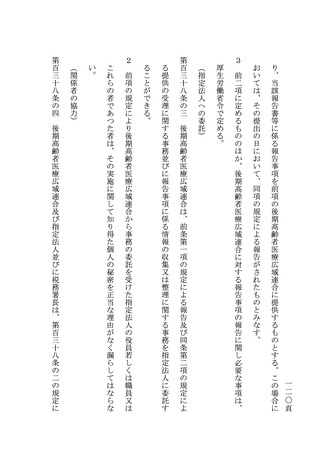 一二〇頁
り、当該報告書等に係る報告事項を前項の後期高齢者医療広域連合に提供するものとする。この場合に
おいては、その提出の日において、同項の規定による報告がされたものとみなす。
3　前二項に定めるもののほか、後期高齢者医療広域連合に対する報告事項の報告に関し必要な事項は、
厚生労働省令で定める。
（指定法人への委託）
第百三十八条の三　後期高齢者医療広域連合は、前条第一項の規定による報告及び同条第二項の規定によ
る提供の受理に関する事務並びに報告事項に係る情報の収集又は整理に関する事務を指定法人に委託す
ることができる。
2　前項の規定により後期高齢者医療広域連合から事務の委託を受けた指定法人の役員若しくは職員又は
これらの者であつた者は、その実施に関して知り得た個人の秘密を正当な理由がなく漏らしてはならな
い。
（関係者の協力）
第百三十八条の四　後期高齢者医療広域連合及び指定法人並びに税務署長は、第百三十八条の二の規定に